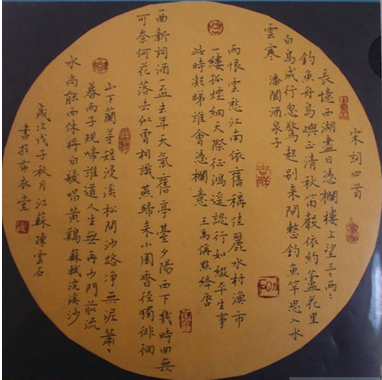 宋詞四首
長憶西湖盡日憑欄樓上望三〻兩〻
釣魚舟島嶼正清秋笛聲依約蘆花裡
白鳥成行忽驚起別來閒整釣魚竿思入水
雲寒 潘閬酒泉子
雨恨雲愁江南依舊稱佳麗水村漁市
一縷孤煙細天際征鴻遙認行如綴平生事
此時凝睇誰會憑欄意 王禹偁點絳唇
一曲新詞酒一盃去年天氣舊亭臺夕陽西下幾時回無
可奈何花落去似曾相識燕歸來小園香徑獨徘徊
山下蘭芽短浸溪松間沙路淨無泥蕭〻
暮雨子規啼誰道人生無再少門前流
水尚能西休將白髮唱黃鷄 蘇軾浣溪沙
歲次戊子秋月江蘇陳雲石
書於布衣堂